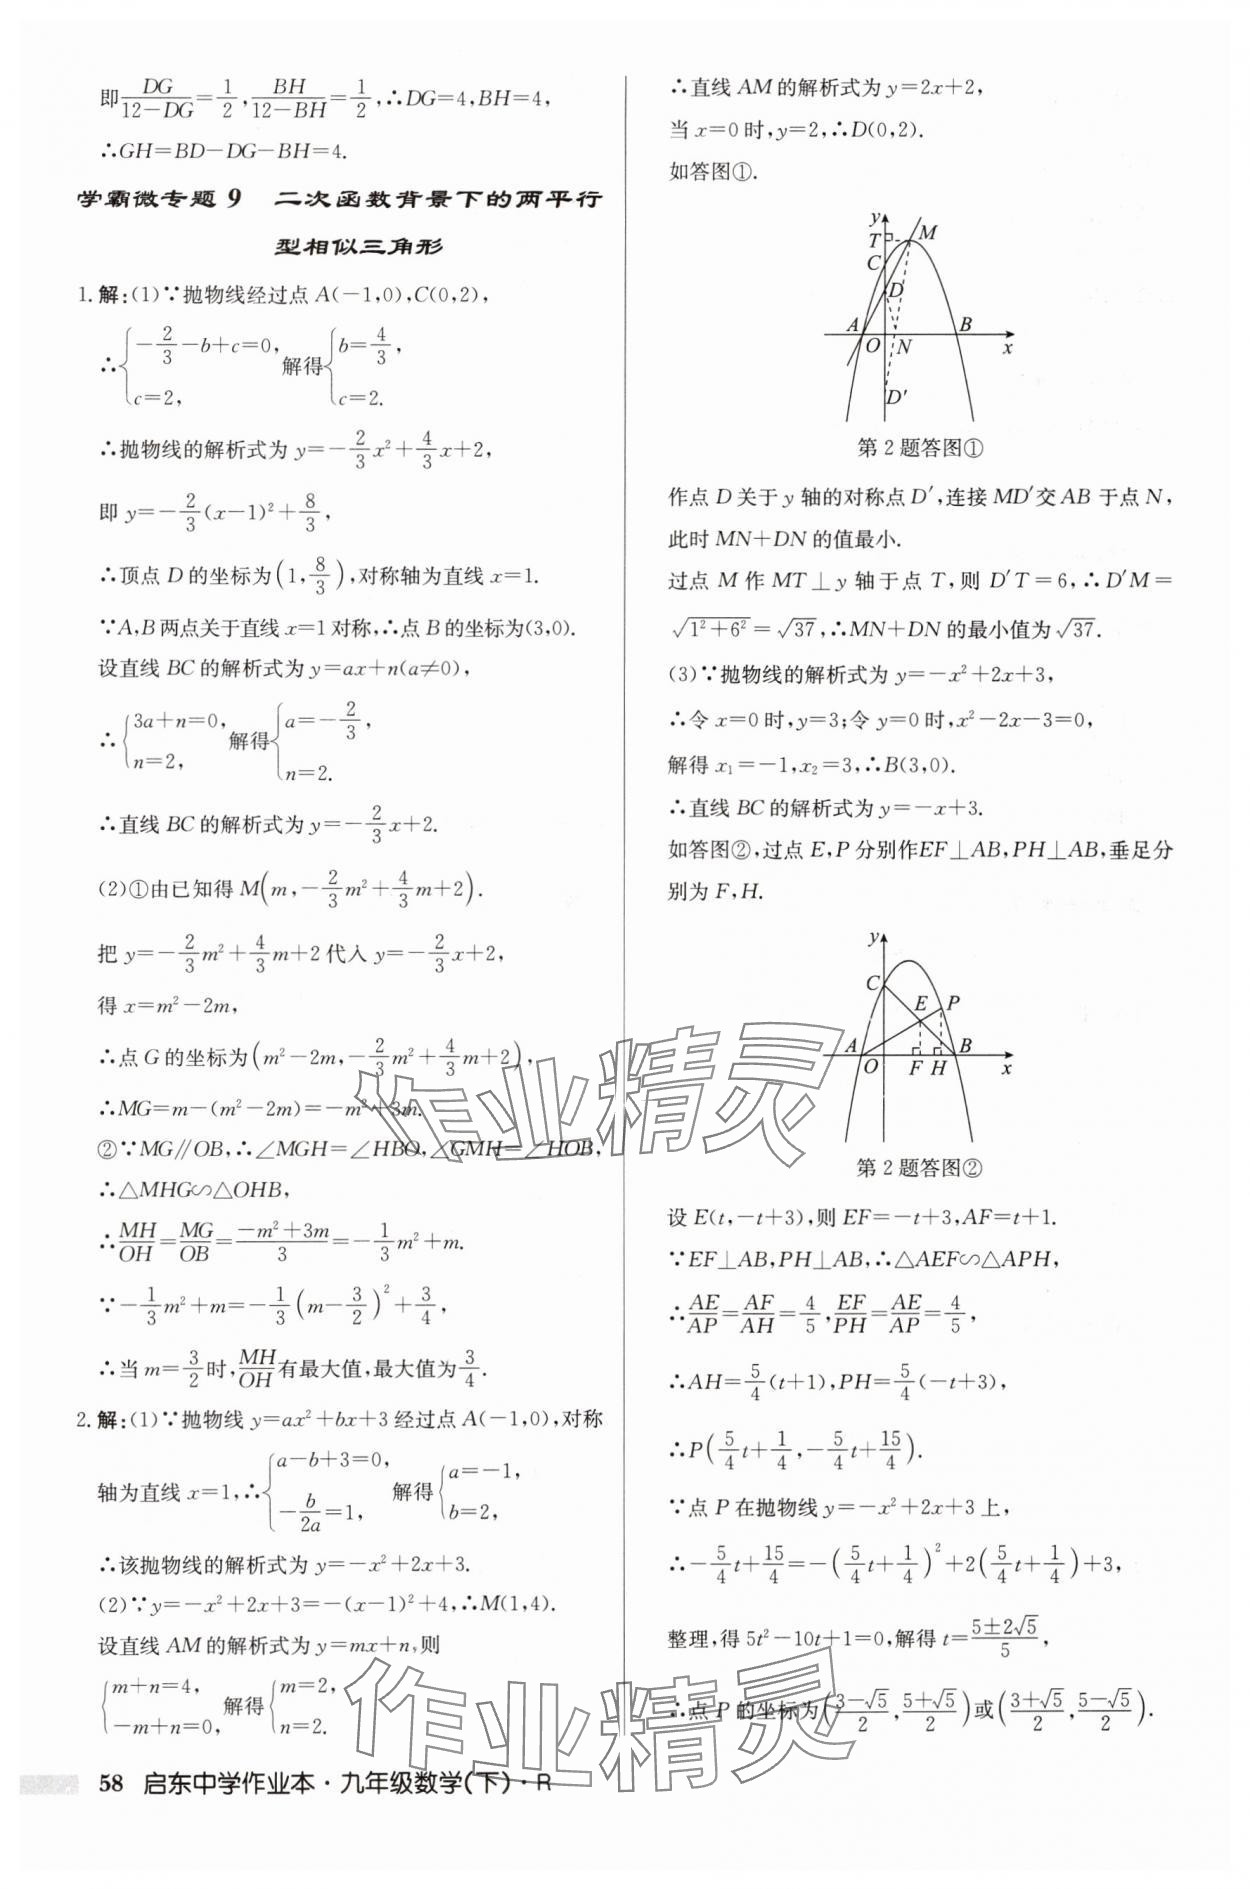 即DG/(12-DG)=1/2,BH/(12-BH)=1/2,∴DG=4,BH=4,
∴GH=BD-DG-BH=4.
学霸微专题9 二次函数背景下的两平行
型相似三角形
1.解:(1)∵抛物线经过点A(-1,0),C(0,2),
∴{-2/3-b+c=0, c=2, 解得{b=4/3, c=2.
∴抛物线的解析式为y=-2/3x²+4/3x+2,
即y=-2/3(x-1)²+8/3,
∴顶点D的坐标为(1,8/3),对称轴为直线x=1.
∵A,B两点关于直线x=1对称,∴点B的坐标为(3,0).
设直线BC的解析式为y=ax+n(a≠0),
∴{3a+n=0, n=2, 解得{a=-2/3, n=2.
∴直线BC的解析式为y=-2/3x+2.
(2)①由已知得M(m,-2/3m²+4/3m+2).
把y=-2/3m²+4/3m+2代入y=-2/3x+2,
得x=m²-2m,
∴点G的坐标为(m²-2m,-2/3m²+4/3m+2),
∴MG=m-(m²-2m)=-m²+3m.
②∵MG∥OB,∴∠MGH=∠HBO,∠GMH=∠HOB,
∴△MHG∽△OHB,
∴MH/OH=MG/OB=(-m²+3m)/3=-1/3m²+m.
∵-1/3m²+m=-1/3(m-3/2)²+3/4,
∴当m=3/2时,MH/OH有最大值,最大值为3/4.
2.解:(1)∵抛物线y=ax²+bx+3经过点A(-1,0),对称
轴为直线x=1,∴{a-b+3=0, -b/2a=1, 解得{a=-1, b=2,
∴该抛物线的解析式为y=-x²+2x+3.
(2)∵y=-x²+2x+3=-(x-1)²+4,∴M(1,4).
设直线AM的解析式为y=mx+n,则
{m+n=4, -m+n=0, 解得{m=2, n=2.
∴直线AM的解析式为y=2x+2,
当x=0时,y=2,∴D(0,2).
如答图①.
y
T
M
C
D
A
B
O
N
x
D′
第2题答图①
作点D关于y轴的对称点D′,连接MD′交AB于点N,
此时MN+DN的值最小.
过点M作MT⊥y轴于点T,则D′T=6,∴D′M=
√(1²+6²)=√37,∴MN+DN的最小值为√37.
(3)∵抛物线的解析式为y=-x²+2x+3,
∴令x=0时,y=3;令y=0时,x²-2x-3=0,
解得x₁=-1,x₂=3,∴B(3,0).
∴直线BC的解析式为y=-x+3.
如答图②,过点E,P分别作EF⊥AB,PH⊥AB,垂足分
别为F,H.
y
C
E
P
A
B
O
F
H
x
第2题答图②
设E(t,-t+3),则EF=-t+3,AF=t+1.
∵EF⊥AB,PH⊥AB,∴△AEF∽△APH,
∴AE/AP=AF/AH=4/5,EF/PH=AE/AP=4/5,
∴AH=5/4(t+1),PH=5/4(-t+3),
∴P(5/4t+1/4,-5/4t+15/4).
∵点P在抛物线y=-x²+2x+3上,
∴-5/4t+15/4=-(5/4t+1/4)²+2(5/4t+1/4)+3,
整理,得5t²-10t+1=0,解得t=(5±2√5)/5,
∴点P的坐标为((3-√5)/2,(5+√5)/2)或((3+√5)/2,(5-√5)/2).
58 启东中学作业本·九年级数学(下)·R
作业精灵
作业精灵